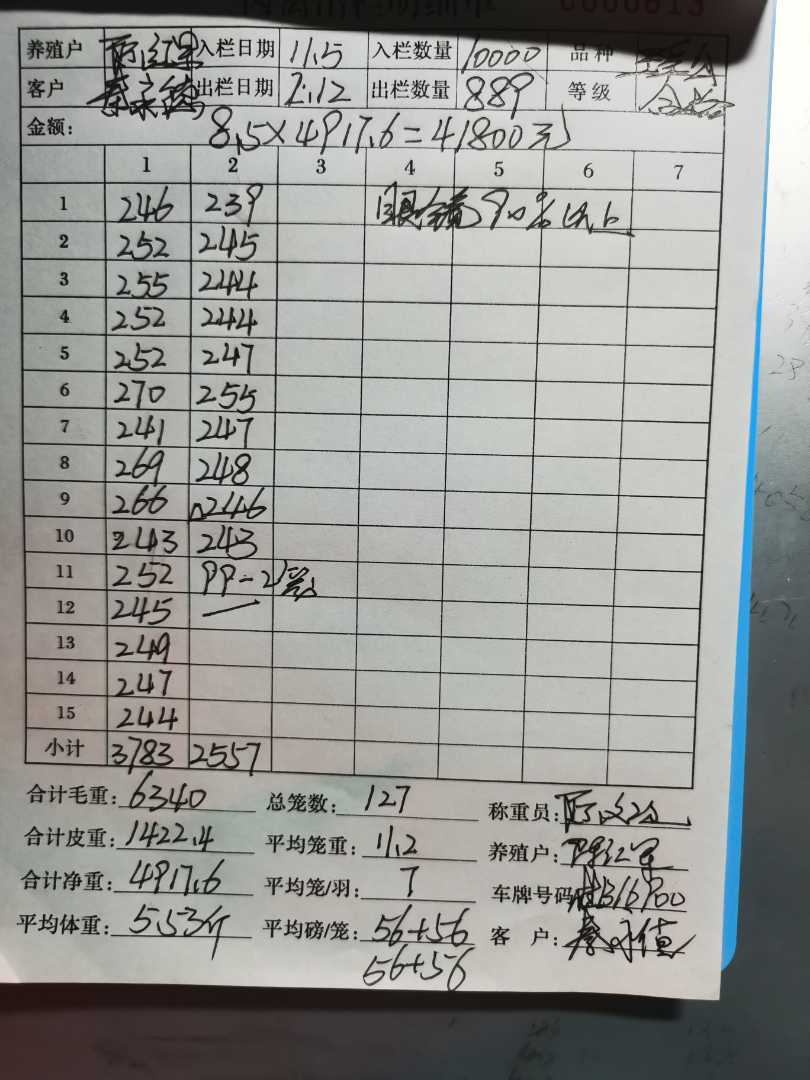 0000613
养殖户 入栏日期 11.5 入栏数量 10000 品种
客户 出栏日期 2.12 出栏数量 889 等级
金额: 8.5×4917.6=41800元
1 2 3 4 5 6 7
1 246 239 90%以上
2 252 245
3 255 244
4 252 244
5 252 247
6 270 255
7 241 247
8 269 248
9 266 246
10 243 243
11 252 99-2
12 245 —
13 249
14 247
15 244
小计 3783 2557
合计毛重: 6340 总笼数: 127 称重员:
合计皮重: 1422.4 平均笼重: 11.2 养殖户:
合计净重: 4917.6 平均笼/羽: 7 车牌号码
平均体重: 5.53斤 平均磅/笼: 56+56 客户:
56+56